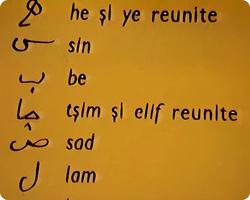 هی he şi ye reunite
س sin
ب be
چا tşim şi elif reunite
ص sad
ل lam